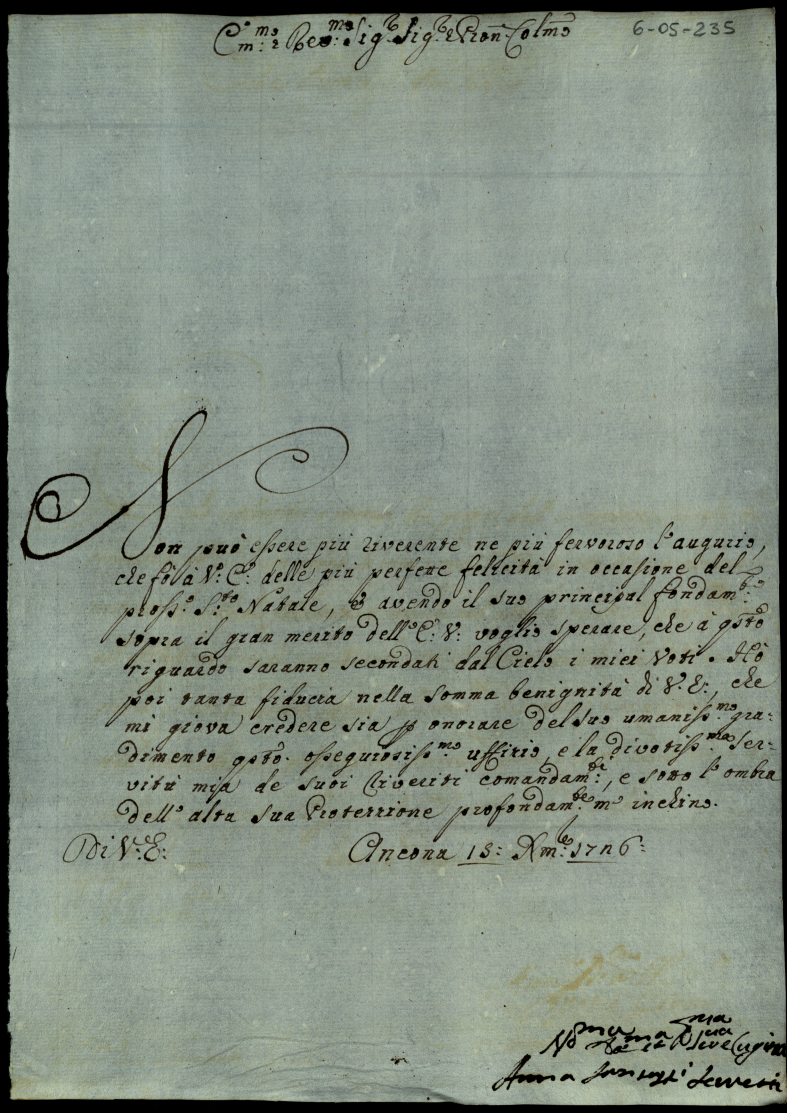 Em.mo e Rev.mo Sig.r Sig.r e Pron Colmo
6-05-235
Non può essere più riverente ne più fervoroso l'augurio,
che fò à V: E: delle più perfette felicità in occasione del
pross.o S.to Natale, & avendo il suo principal fondam.to
sopra il gran merito dell'E: V: voglio sperare, che à qsto
riguardo saranno secondati dal Cielo i miei Voti. Hò
poi tanta fiducia nella somma benignità di V: E:, che
mi giova credere sia p onorare del suo umaniss.mo gra-
dimento qsto ossequiosiss.mo uffitio, e la divotiss.ma Ser-
vitù mia de suoi riveriti comandam.ti, e sotto l'ombra
dell'alta sua Protettione profondam.te m'inchino.
Di V: E:
Ancona 15: Xmb.e 1726:
Cugina
Anna